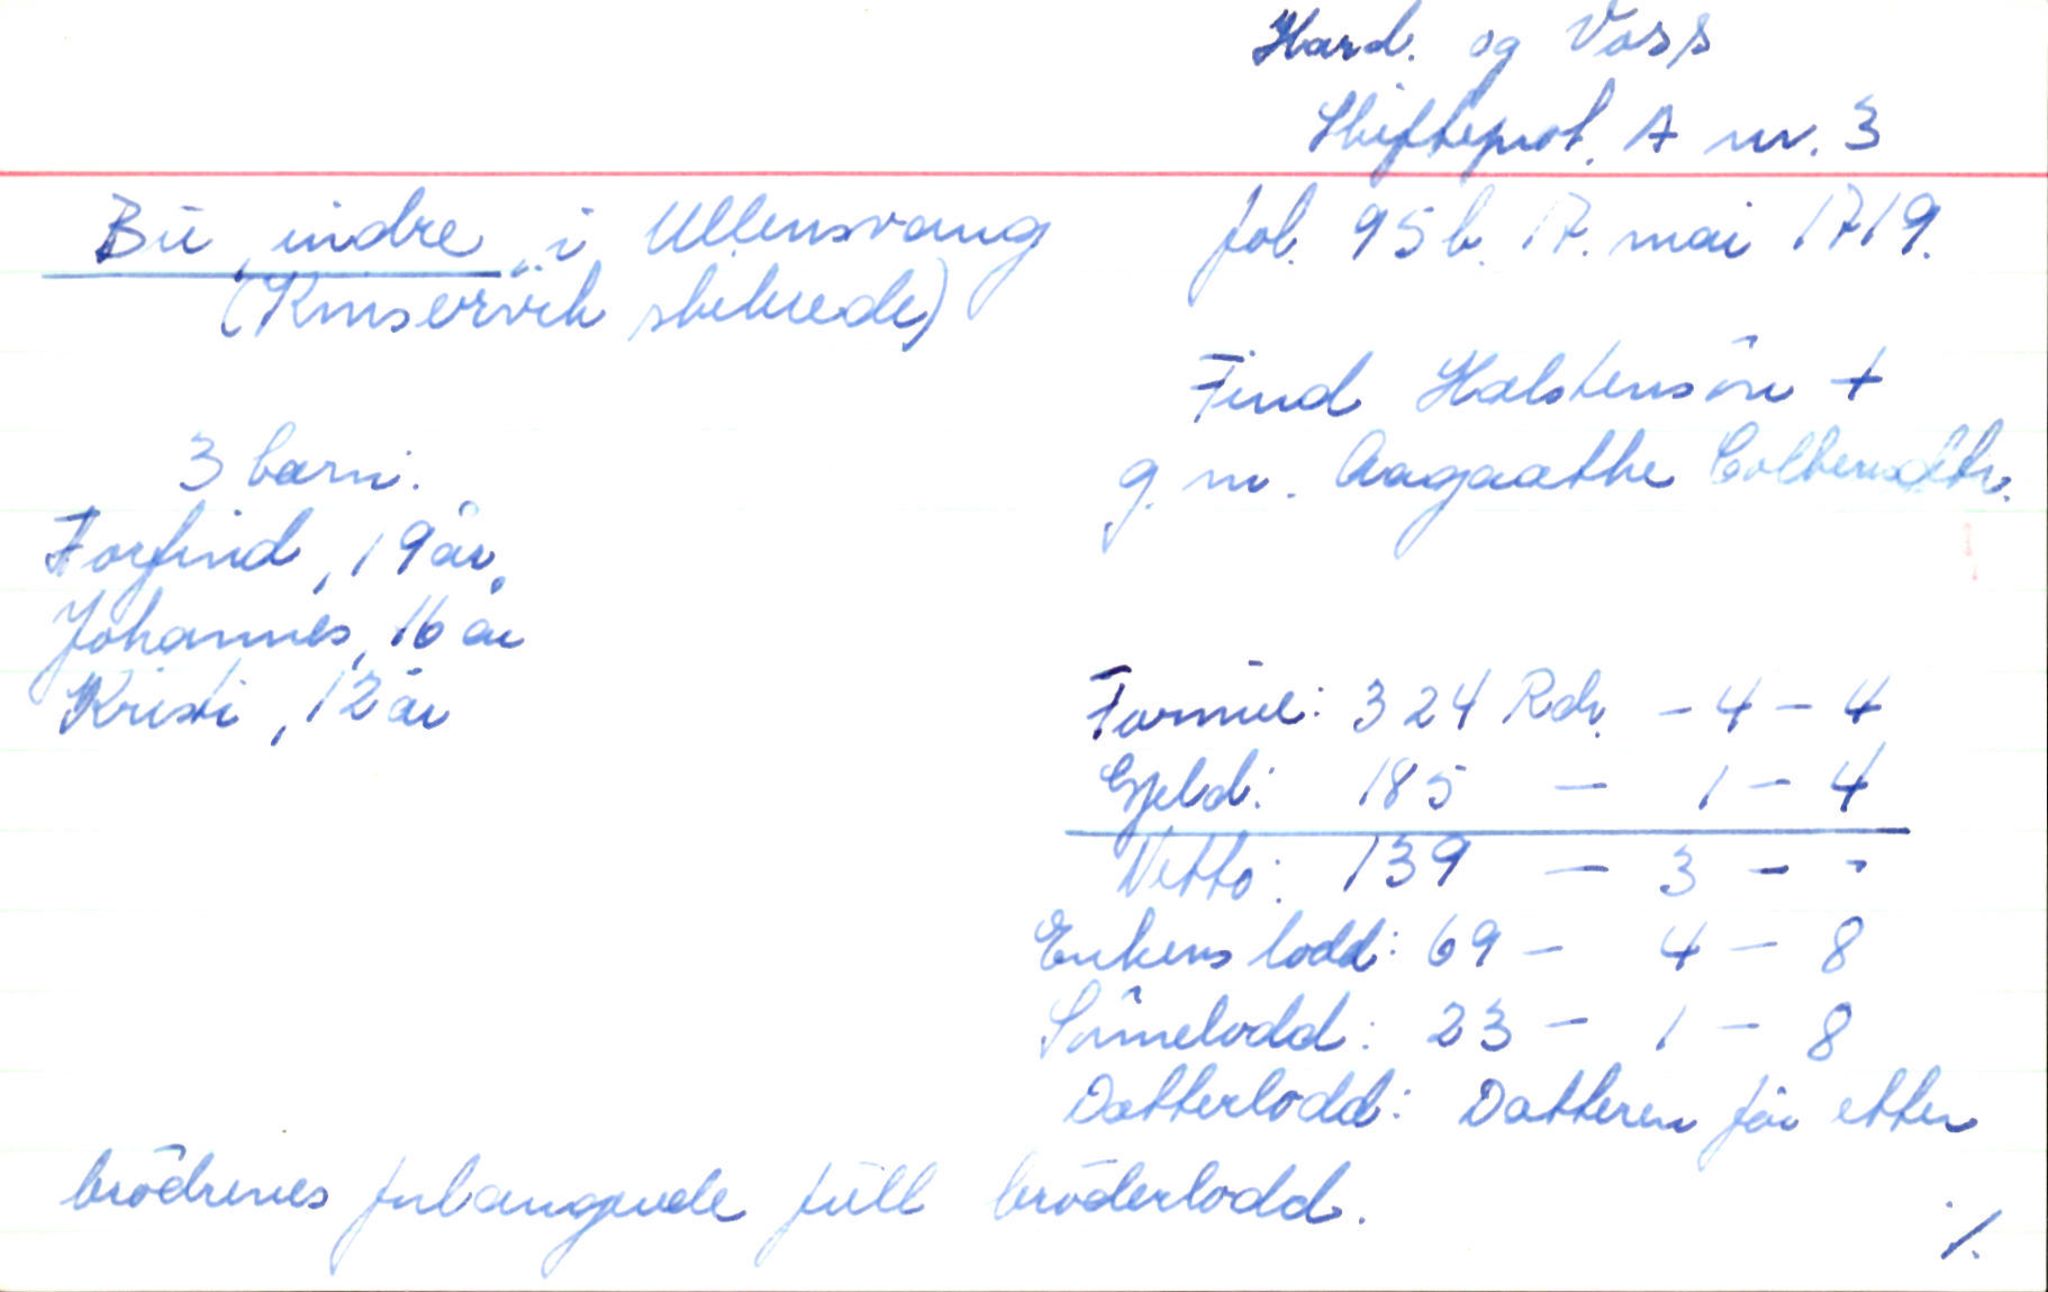 Hard. og Voss
Skifteprot. A nr. 3
Bu, indre, i Ullensvang
fol. 95b. 17. mai 1719.
(Kinservik skibrede)
Find Halstensøn +
g. m. Aagaathe
3 barn:
Torfind, 19 år,
Johannes, 16 år
Kristi, 12 år
Formue: 324 Rdr. - 4 - 4
Gjeld: 185 - 1 - 4
Netto: 139 - 3 - -
Enkens lodd: 69 - 4 - 8
Sønnelodd: 23 - 1 - 8
Datterlodd: Datteren får etter
brødrenes forlangende full brøderlodd.
./.